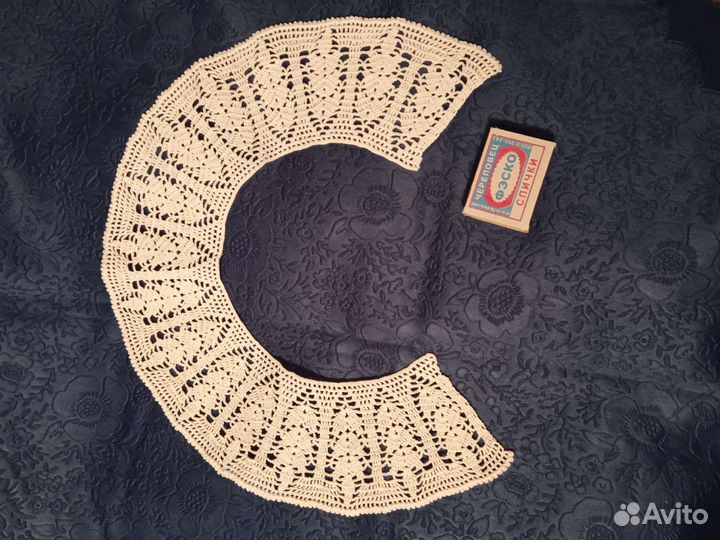 ЧЕРЕПОВЕЦ
ФЭСКО
СПИЧКИ
Avito